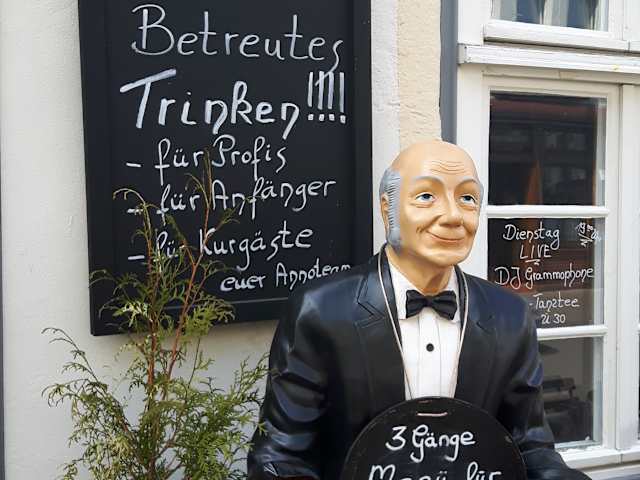 Betreutes
Trinken!!!!
- für Profis
- für Anfänger
- für Kurgäste
euer Annoteam
Dienstag
LIVE
DJ Grammophone
-Tanztee
Ü 30
3 Gänge
Menü für